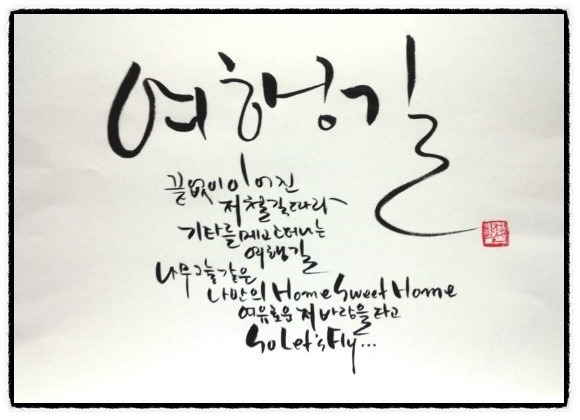 여행길
끝없이 이어진
저 철길 따라
기타를 메고 떠나는
여행길
나무그늘 같은
나만의 Home Sweet Home
여유로운 저 바람을 타고
So Let's Fly...